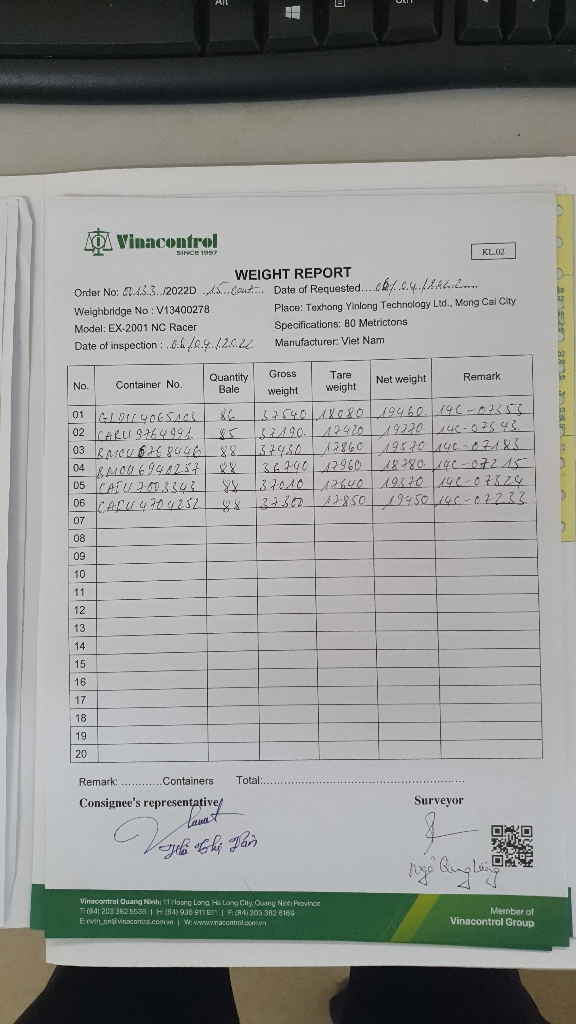 Alt
Ctrl
Vinacontrol
SINCE 1957
KL.02
WEIGHT REPORT
Order No: 00133 /2022D 15 Cont Date of Requested 06/04/2022
Weighbridge No : V13400278 Place: Texhong Yinlong Technology Ltd., Mong Cai City
Model: EX-2001 NC Racer Specifications: 80 Metrictons
Date of inspection : 06/04/2022 Manufacturer: Viet Nam
No. Container No. Quantity Bale Gross weight Tare weight Net weight Remark
01 86 37540 18080 19460 14C-07353
02 85 14C-07343
03 88 37430 17860 19570 14C-07183
04 88 36740 17960 18780 14C-07215
05 88 37010 17640 19370 14C-07324
06 88 37300 17850 19450 14C-07233
07
08
09
10
11
12
13
14
15
16
17
18
19
20
Remark: ............Containers Total:
Consignee's representative Surveyor
Vinacontrol Quang Ninh: 11 Hoang Long, Ha Long City, Quang Ninh Province
T: (84) 203 382 5535 | H: (84) 936 911 811 | F: (84) 203 382 6169
W: www.vinacontrol.com.vn
Member of
Vinacontrol Group